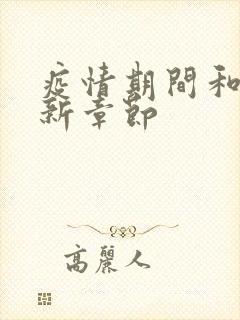 疫情期間和
新章節
高麗人